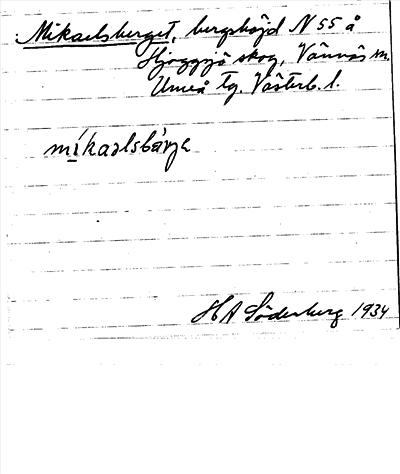 Mikaelsberget, bergshöjd N 55 å
Hjoggsjö skog, Vännäs sn.
Umeå tg. Västerb. l.
míkaəlsbárjɛ
H A Söderberg 1934